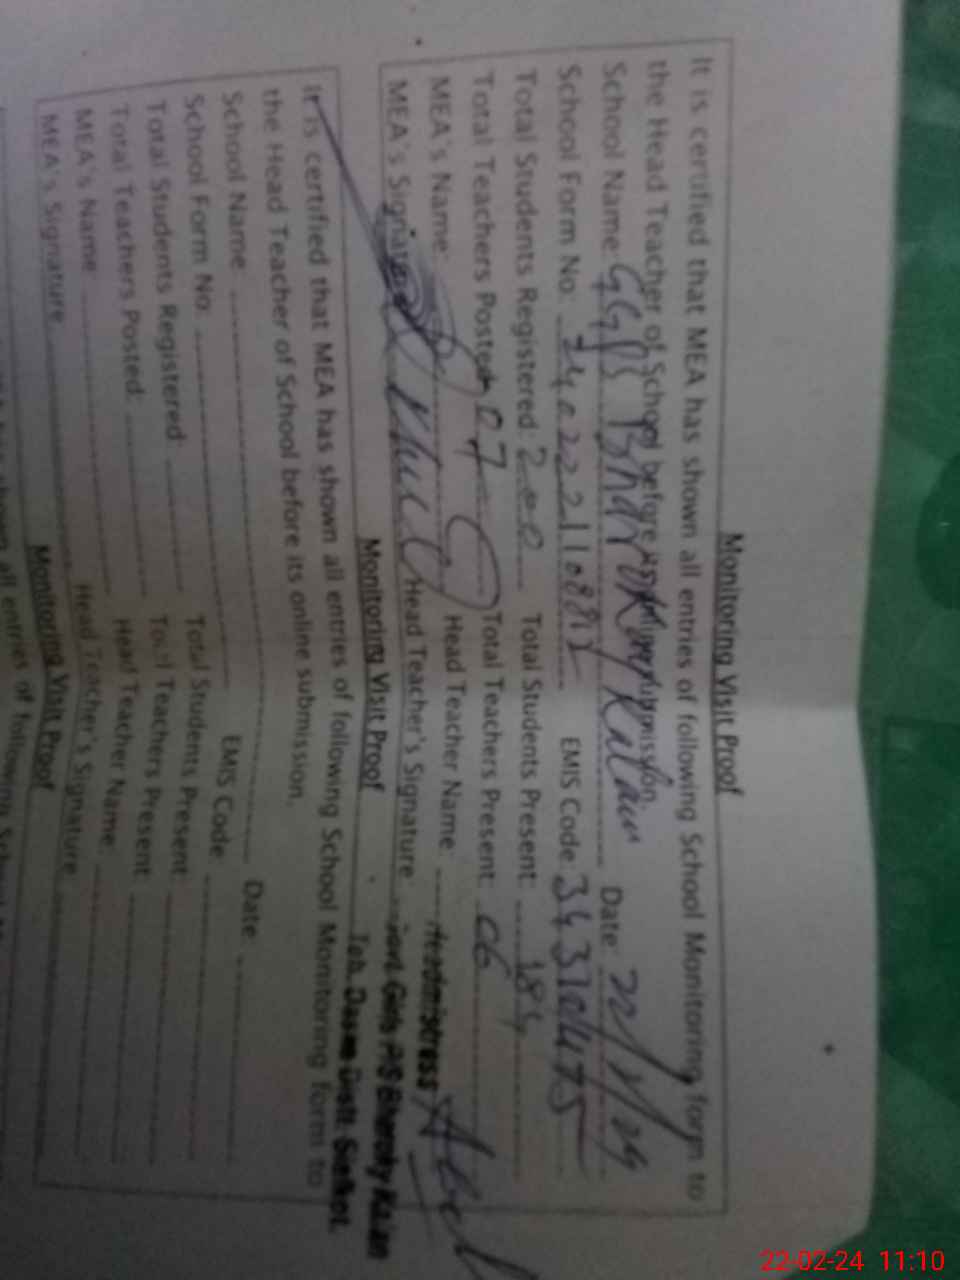 Monitoring Visit Proof
It is certified that MEA has shown all entries of following School Monitoring form to
the Head Teacher of School before its online submission.
School Name: GGPS Kalan Date: 22/2/24
School Form No: EMIS Code:
Total Students Registered: 200 Total Students Present: 184
Total Teachers Posted: 07 Total Teachers Present: 06
MEA's Name: Head Teacher Name: Headmistress
MEA's Signature Head Teacher's Signature: Govt Girls P/S Bharoky Kalan
Teh. Daska Distt. Sialkot.
Monitoring Visit Proof
It is certified that MEA has shown all entries of following School Monitoring form to
the Head Teacher of School before its online submission.
School Name Date:
School Form No. EMIS Code:
Total Students Registered Total Students Present:
Total Teachers Posted: Total Teachers Present:
MEA's Name Head Teacher Name:
MEA's Signature Head Teacher's Signature
Monitoring Visit Proof
shown all entries of following School
22-02-24 11:10